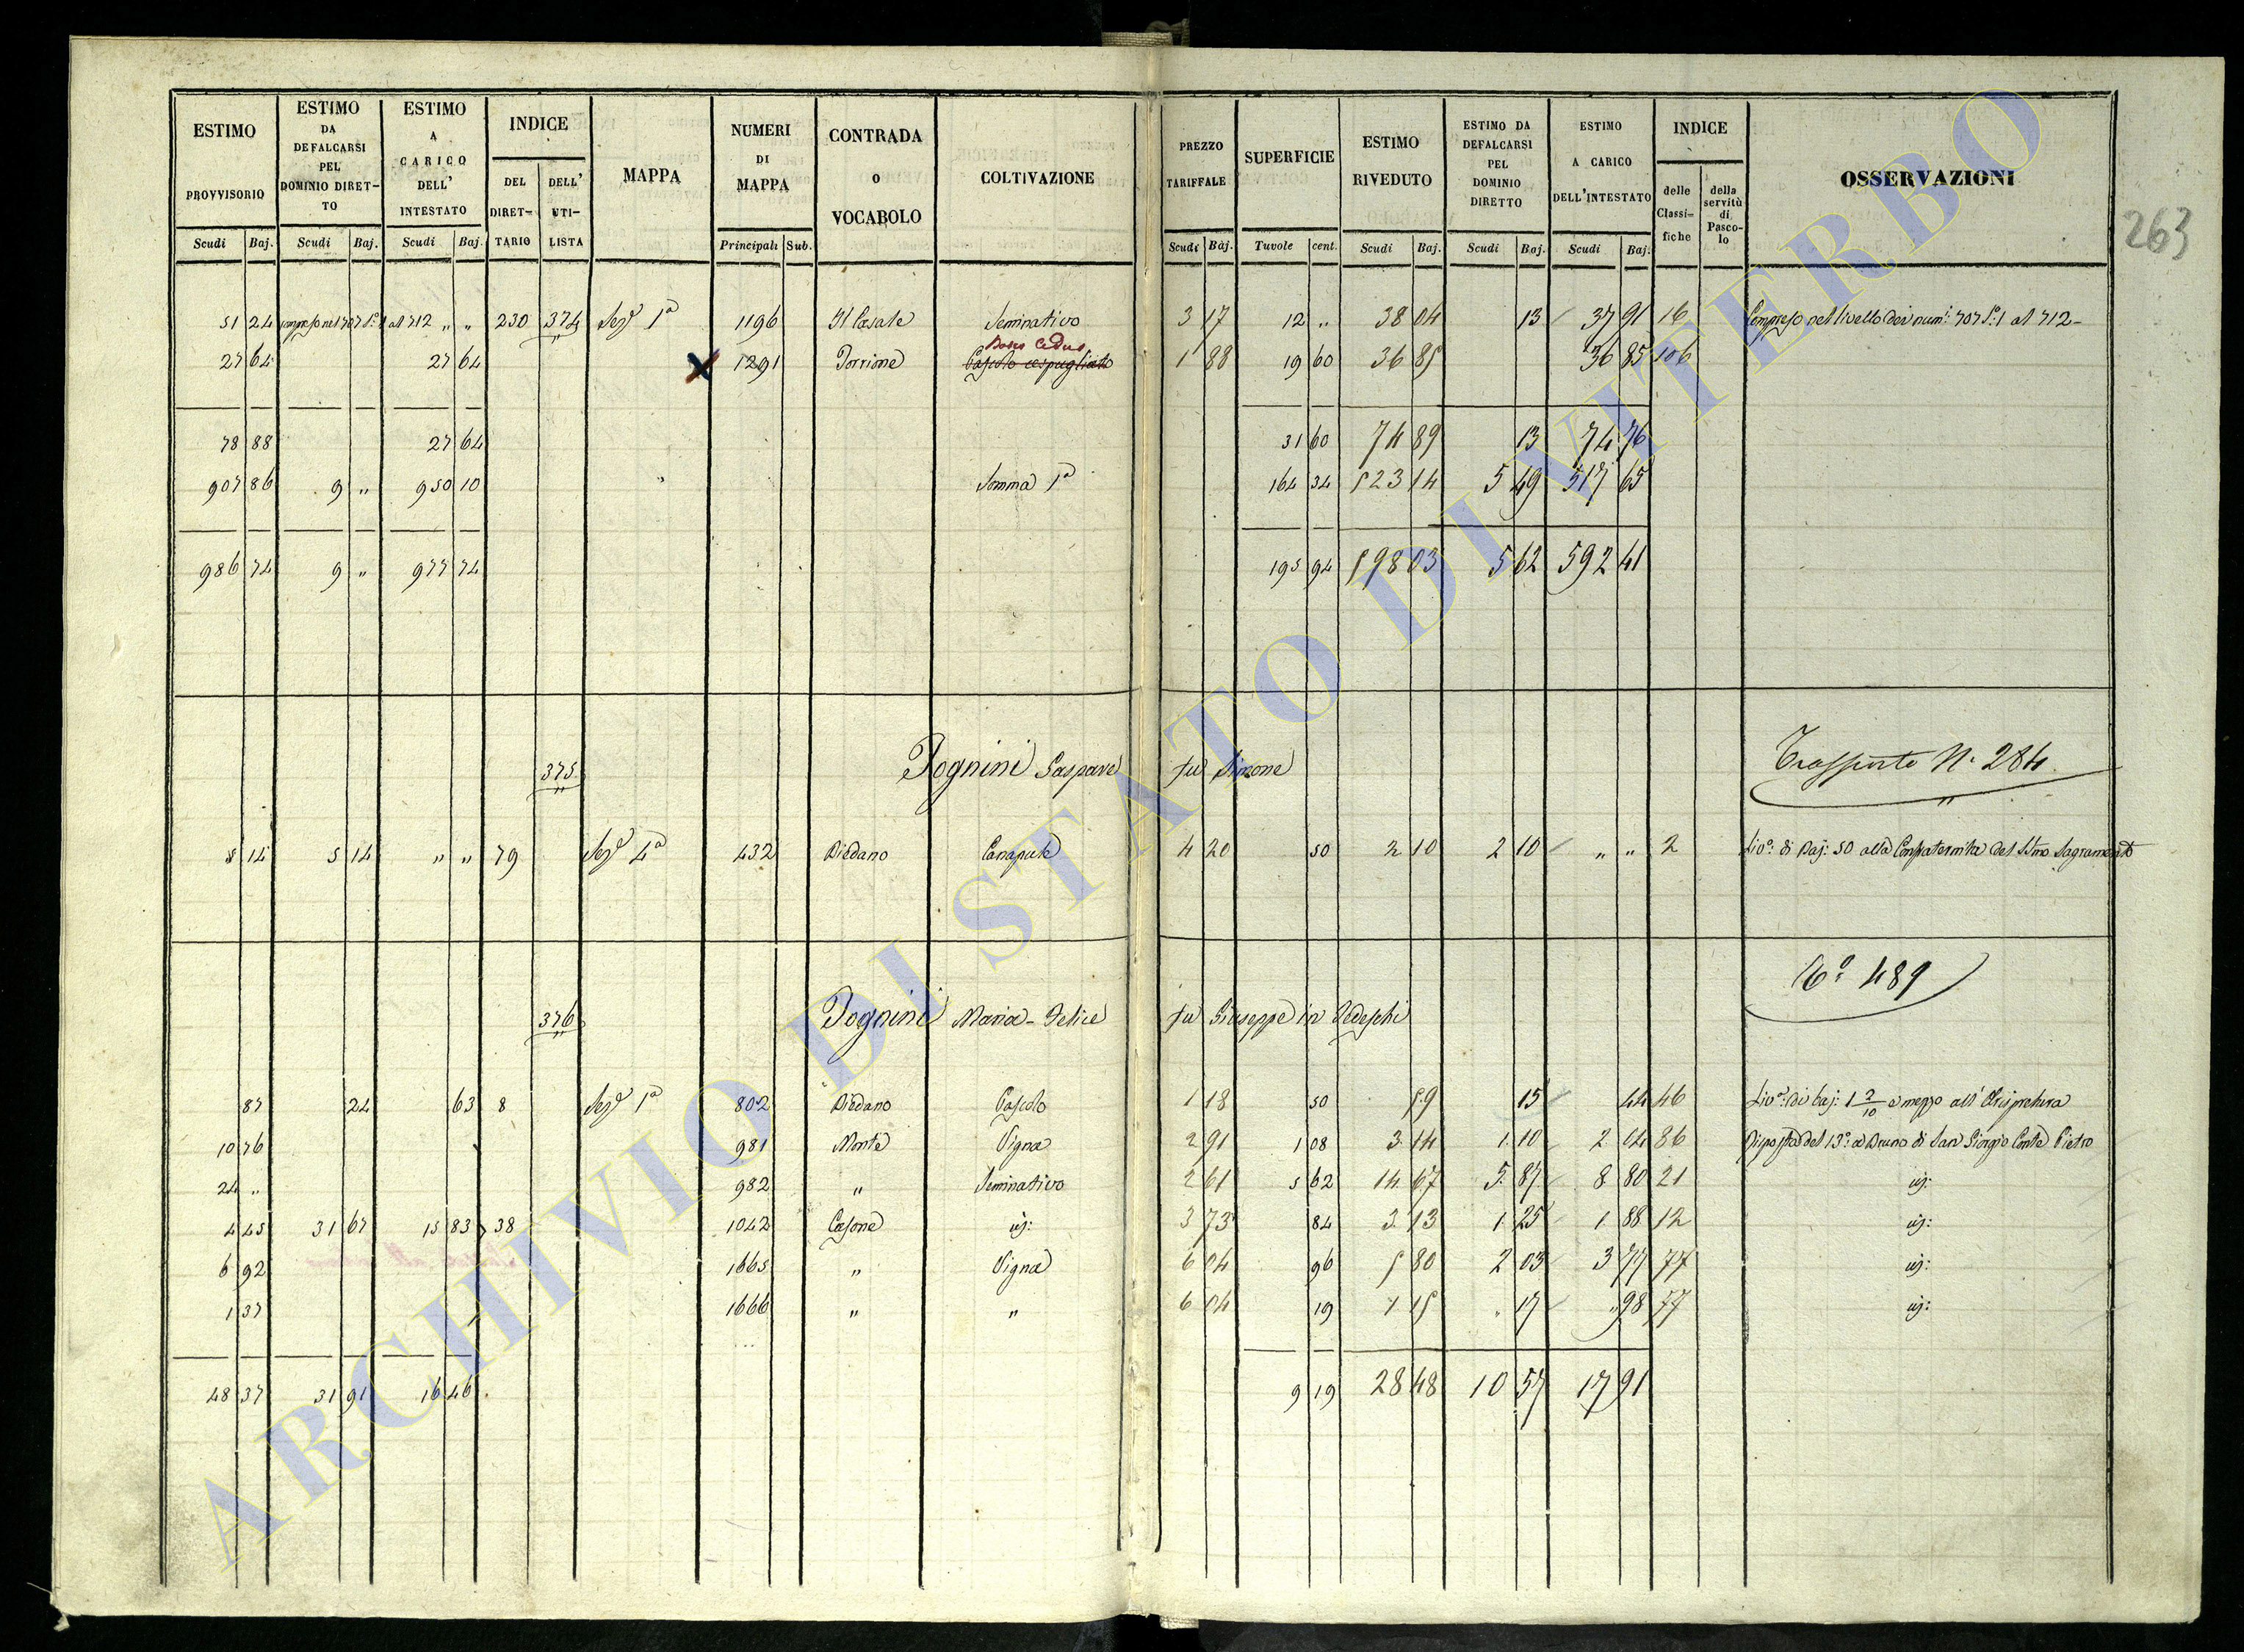 ESTIMO PROVVISORIO Scudi Baj.
ESTIMO DA DEFALCARSI PEL DOMINIO DIRET-TO Scudi Baj.
ESTIMO A CARICO DELL' INTESTATO Scudi Baj.
INDICE DEL DIRET-TARIO DELL' UTI-LISTA
MAPPA
NUMERI DI MAPPA Principali Sub.
CONTRADA O VOCABOLO
COLTIVAZIONE
PREZZO TARIFFALE Scudi Baj.
SUPERFICIE Tavole cent.
ESTIMO RIVEDUTO Scudi Baj.
ESTIMO DA DEFALCARSI PEL DOMINIO DIRETTO Scudi Baj.
ESTIMO A CARICO DELL'INTESTATO Scudi Baj.
INDICE delle Classi-fiche della servitù di Pasco-lo
OSSERVAZIONI
263
51 24 compreso nel 707 S.º 1 al 712 " " 230 374 Seze 1ª 1196 Il Casale Seminativo 3 17 12 " 38 04 13 37 91 16 Compreso nel livello dei num.i 707 S.º 1 al 712 -
Bosco Ceduo
27 64 27 64 X 1291 Porrione Pascolo cespugliato 1 88 19 60 36 85 36 85 106
78 88 27 64 31 60 74 89 13 74 76
907 86 9 " 950 10 Somma 1ª 164 34 523 14 5 49 517 65
986 74 9 " 977 74 195 94 598 03 5 62 592 41
375 Pognini Gaspare fu Simone Trasporto N. 284
5 14 5 14 " " 79 Seze 4ª 432 Piedano Canapule 4 20 50 2 10 2 10 " " 2 Livo: di Baj: 50 alla Confraternita del SSmo Sagramento
6º 489
376 Pognini Maria-Felice fu Giuseppe in Tedeschi
87 24 63 8 Seze 1ª 802 Piedano Pascolo 1 18 50 59 15 44 46 Livo: di baj: 1 2/10 e mezzo all' Arcipretura
10 76 981 Monte Vigna 2 91 1 08 3 14 1 10 2 04 86 Risposta del 13º a Bruno di San Giorgio Conte Pietro
24 " 982 " Seminativo 2 61 5 62 14 67 5 87 8 80 21 id:
4 45 31 67 15 83 38 1042 Casone id: 3 73 84 3 13 1 25 1 88 12 id:
6 92 1665 " Vigna 6 04 96 5 80 2 03 3 77 77 id:
1 37 1666 " " 6 04 19 1 15 " 17 " 98 77 id:
48 37 31 91 16 46 9 19 28 48 10 57 17 91
ARCHIVIO DI STATO DI VITERBO